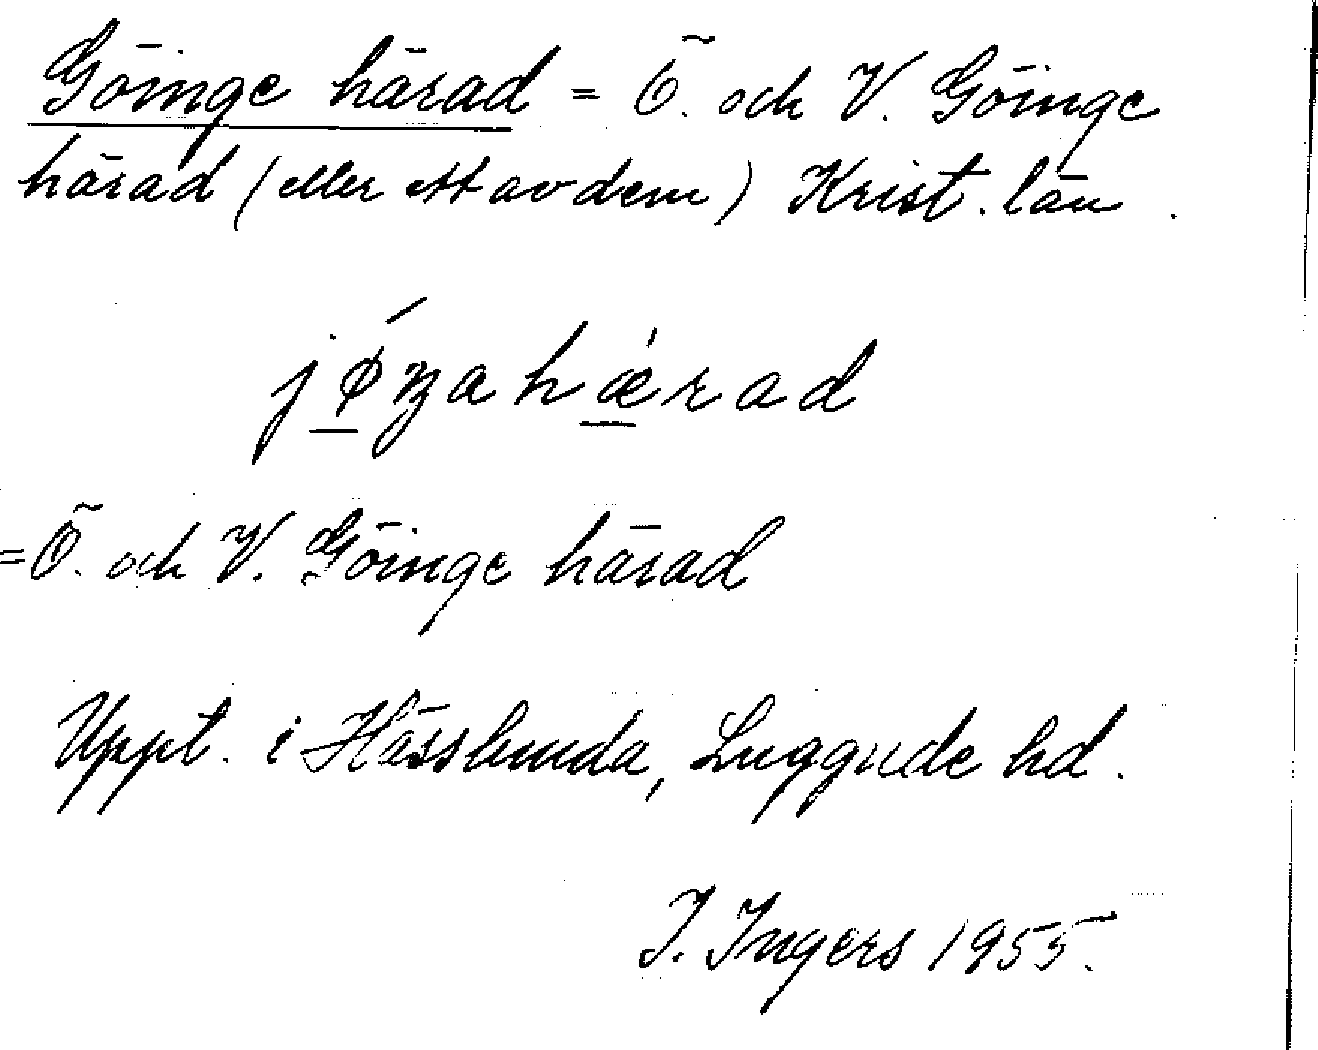 Göinge härad = Ö. och V. Göinge
härad (eller ett av dem) Krist. län.
jǿŋa hǽrad
= Ö. och V. Göinge härad
Uppt. i Hässlunda, Luggude hd.
I. Ingers 1955.